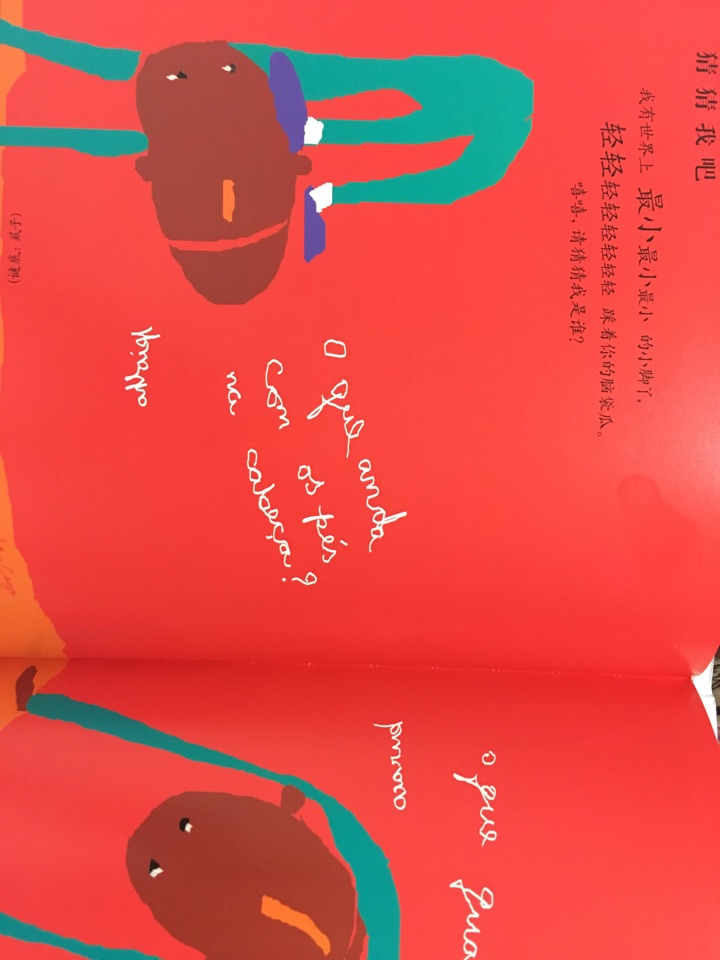 猜猜我吧
我有世界上 最小最小最小 的小脚丫，
轻轻轻轻轻轻轻轻 踩着你的脑袋瓜。
嘻嘻，请猜猜我是谁？
O que anda
com os pés
na cabeça?
(谜底：虱子)
o que